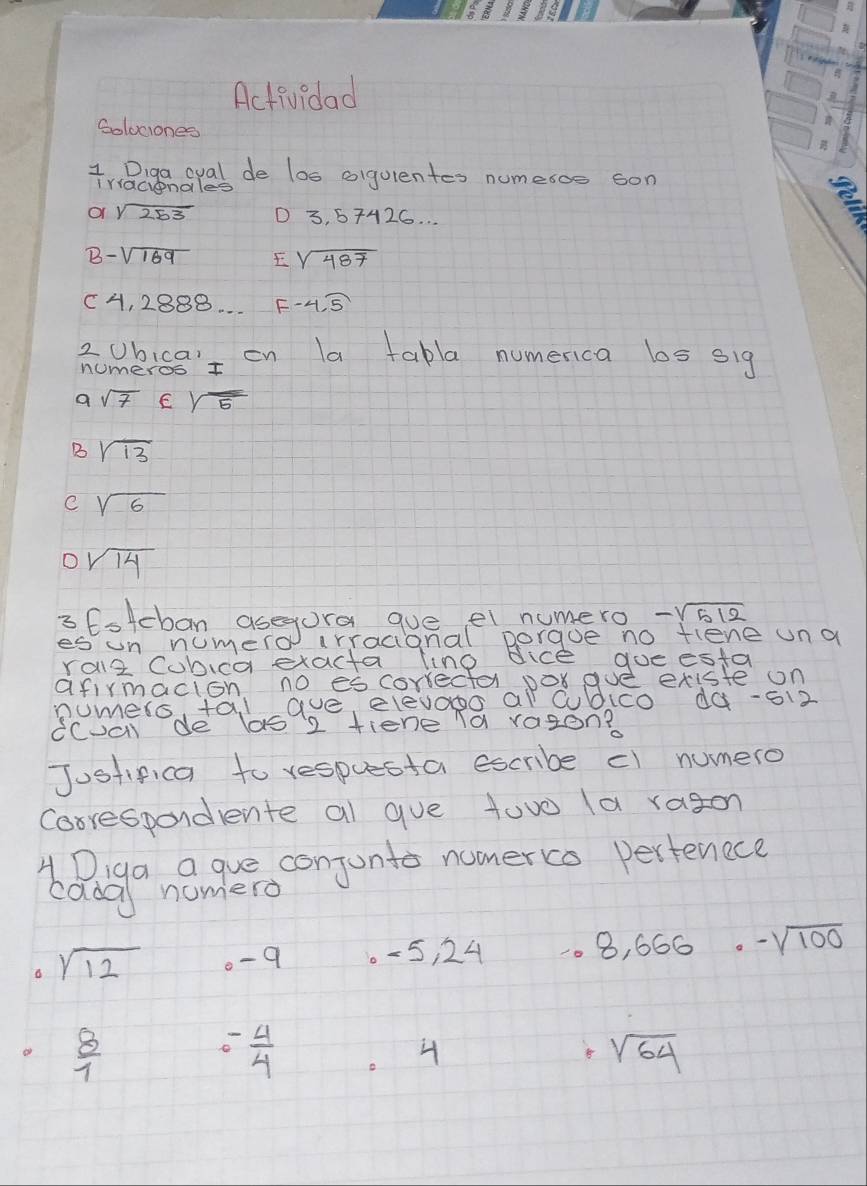 Actividad
Soluciones
1 Diga cual de los siguientes numeros son
irracionales
a √253 D 3,57426...
B -√169 E √487
C 4,2888... F -4,5
2 Ubicar en la tabla numerica los sig
numeros I
a √7 E √5
B √13
C √6
D √14
3 Esteban asegura que el numero -√512
es un numero irracional porque no tiene una
raiz cubica exacta lina dice que esta
afirmacion no es correcta por que existe un
numero tal que elevado al cubico da -512
¿Cual de las 2 tiene la razon?
Justifica tu respuesta escribe el numero
correspondiente al que tuvo la razon
4 Diga a que conjunto numerico pertenece
cada numero
√12 -9 -5,24 8,666 -√100
8/1 -4/4 4 √64
Pelik